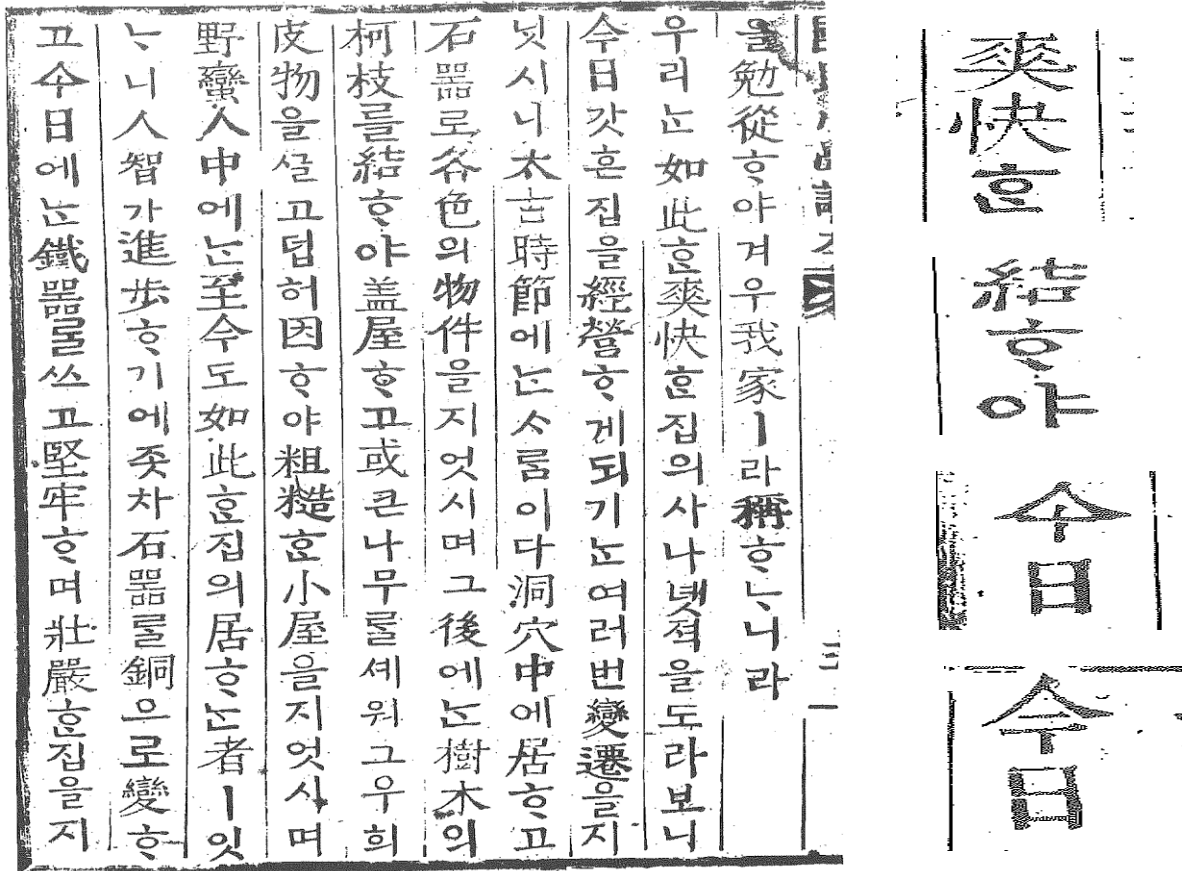 을勉從ᄒᆞ야겨우我家ㅣ라稱ᄒᆞᄂᆞ니라
우리ᄂᆞᆫ如此ᄒᆞᆫ爽快ᄒᆞᆫ집의사나녯젹을도라보니
今日갓흔집을經營ᄒᆞ게되기ᄂᆞᆫ여러번變遷을지
닛시니太古時節에ᄂᆞᆫᄉᆞᄅᆞᆷ이다洞穴中에居ᄒᆞ고
石器로各色의物件을지엇시며그後에ᄂᆞᆫ樹木의
柯枝를結ᄒᆞ야盖屋ᄒᆞ고或큰나무ᄅᆞᆯ셰워그우희
皮物을ᄭᆞᆯ고덥허因ᄒᆞ야粗糙ᄒᆞᆫ小屋을지엇사며
野蠻人中에ᄂᆞᆫ至今도如此ᄒᆞᆫ집의居ᄒᆞᄂᆞᆫ者ㅣ잇
ᄂᆞ니人智가進步ᄒᆞ기에좃차石器ᄅᆞᆯ銅으로變ᄒᆞ
고今日에ᄂᆞᆫ鐵器ᄅᆞᆯ쓰고堅牢ᄒᆞ며壯嚴ᄒᆞᆫ집을지
爽快ᄒᆞᆫ
結ᄒᆞ야
今日
今日